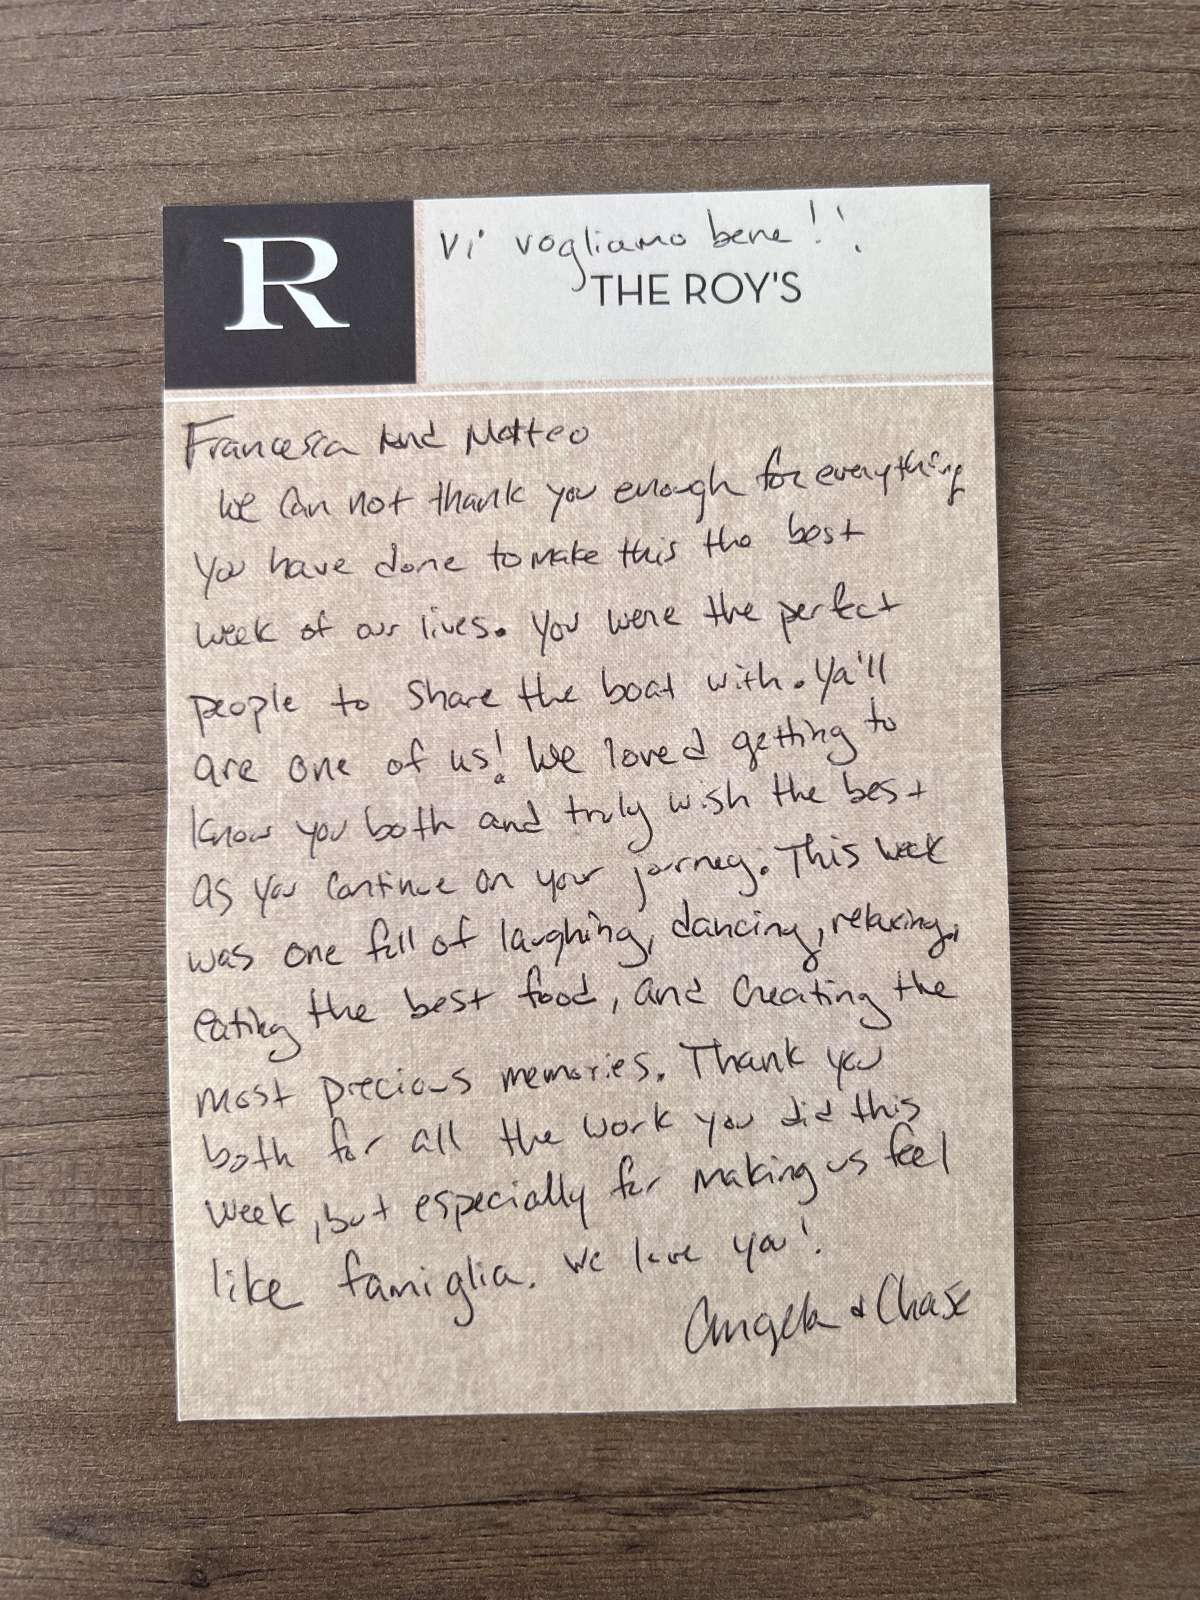 R
Vi vogliamo bene!!
THE ROY'S
Francesca And Matteo
We can not thank you enough for everything
you have done to make this the best
week of our lives. You were the perfect
people to share the boat with. Ya'll
are one of us! We loved getting to
know you both and truly wish the best
as you continue on your journey. This week
was one full of laughing, dancing, relaxing,
eating the best food, and creating the
most precious memories. Thank you
both for all the work you did this
week, but especially for making us feel
like famiglia. We love you!
Angela & Chase